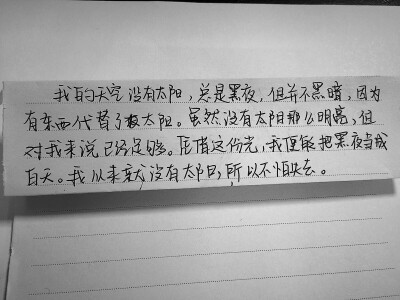 我的天空没有太阳，总是黑夜，但并不黑暗，因为
有东西代替了太阳。虽然没有太阳那么明亮，但
对我来说已经足够。凭借这份光，我便能把黑夜当成
白天。我从来就没有太阳，所以不怕失去。